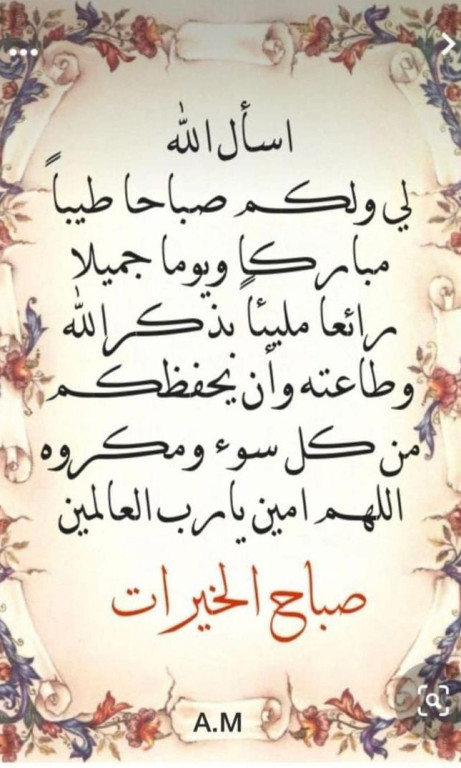 اسأل الله
لي ولكم صباحا طيباً
مباركا ويوما جميلا
رائعا مليئاً بذكر الله
وطاعته وأن يحفظكم
من كل سوء ومكروه
اللهم امين يارب العالمين
صباح الخيرات
A.M